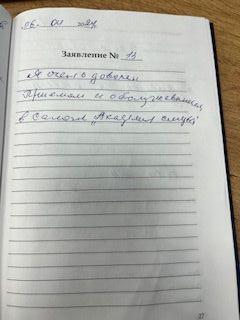 26. 04 2024
Заявление № 13
Я очень доволен
Приемом и обслуживанием
в Салоне „Академия
27